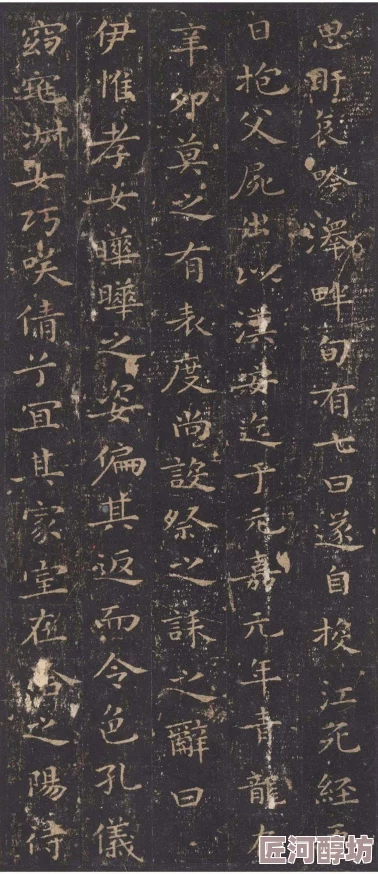 思盱哀吟澤畔旬有七日遂自投江死經五
日抱父屍出以漢安迄于元嘉元年青龍在
辛卯莫之有表度尚設祭之誄之辭曰
伊惟孝女曄曄之姿偏其返而令色孔儀
窈窕淑女巧咲倩兮冝其家室在洽之陽待
匠河醇坊